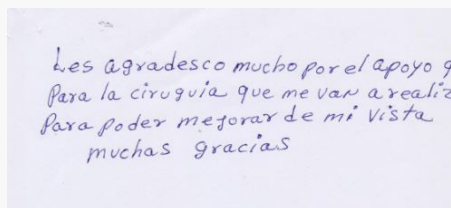 Les agradesco mucho por el apoyo
Para la ciruguia que me van a realiz
Para poder mejorar de mi vista
muchas gracias